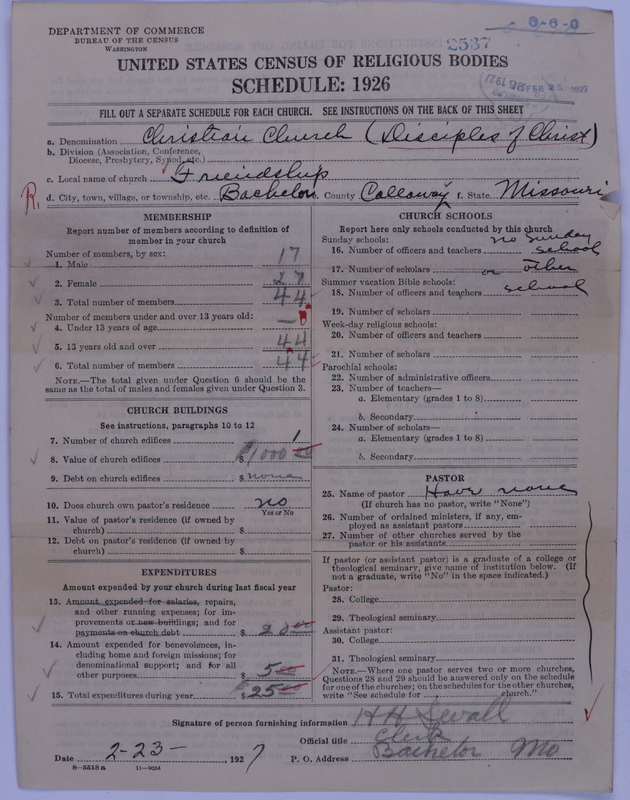 DEPARTMENT OF COMMERCE
BUREAU OF THE CENSUS
WASHINGTON
0-6-0
2537
FEB 25 1927
UNITED STATES CENSUS OF RELIGIOUS BODIES
SCHEDULE: 1926
FILL OUT A SEPARATE SCHEDULE FOR EACH CHURCH. SEE INSTRUCTIONS ON THE BACK OF THIS SHEET
a. Denomination Christian Church (Disciples of Christ)
b. Division (Association, Conference,
Diocese, Presbytery, Synod, etc.)
c. Local name of church Friendship
R. d. City, town, village, or township, etc. Bachelor e. County Callaway f. State Missouri
MEMBERSHIP
Report number of members according to definition of
member in your church
Number of members, by sex:
1. Male 17
2. Female 27
3. Total number of members 44
Number of members under and over 13 years old:
4. Under 13 years of age —
5. 13 years old and over 44
6. Total number of members 44
NOTE.—The total given under Question 6 should be the
same as the total of males and females given under Question 3.
CHURCH BUILDINGS
See instructions, paragraphs 10 to 12
7. Number of church edifices 1
8. Value of church edifices $1000 00
9. Debt on church edifices $ none
10. Does church own pastor's residence no
Yes or No
11. Value of pastor's residence (if owned by
church) $
12. Debt on pastor's residence (if owned by
church) $
EXPENDITURES
Amount expended by your church during last fiscal year
13. Amount expended for salaries, repairs,
and other running expenses; for im-
provements or new buildings; and for
payments on church debt $ 20 00
14. Amount expended for benevolences, in-
cluding home and foreign missions; for
denominational support; and for all
other purposes $ 5 00
15. Total expenditures during year $ 25 00
CHURCH SCHOOLS
Report here only schools conducted by this church
Sunday schools: no Sunday
16. Number of officers and teachers school
17. Number of scholars or other
Summer vacation Bible schools:
18. Number of officers and teachers school
19. Number of scholars
Week-day religious schools:
20. Number of officers and teachers
21. Number of scholars
Parochial schools:
22. Number of administrative officers
23. Number of teachers—
a. Elementary (grades 1 to 8)
b. Secondary
24. Number of scholars—
a. Elementary (grades 1 to 8)
b. Secondary
PASTOR
25. Name of pastor Have none
(If church has no pastor, write "None")
26. Number of ordained ministers, if any, em-
ployed as assistant pastors
27. Number of other churches served by the
pastor or his assistants
If pastor (or assistant pastor) is a graduate of a college or
theological seminary, give name of institution below. (If
not a graduate, write "No" in the space indicated.)
Pastor:
28. College
29. Theological seminary
Assistant pastor:
30. College
31. Theological seminary
NOTE.—Where one pastor serves two or more churches,
Questions 28 and 29 should be answered only on the schedule
for one of the churches; on the schedules for the other churches,
write "See schedule for church."
Signature of person furnishing information H H Sevall
Official title Clerk
Date 2-23- 1927 P. O. Address Bachelor Mo
8-5518a 11-9054